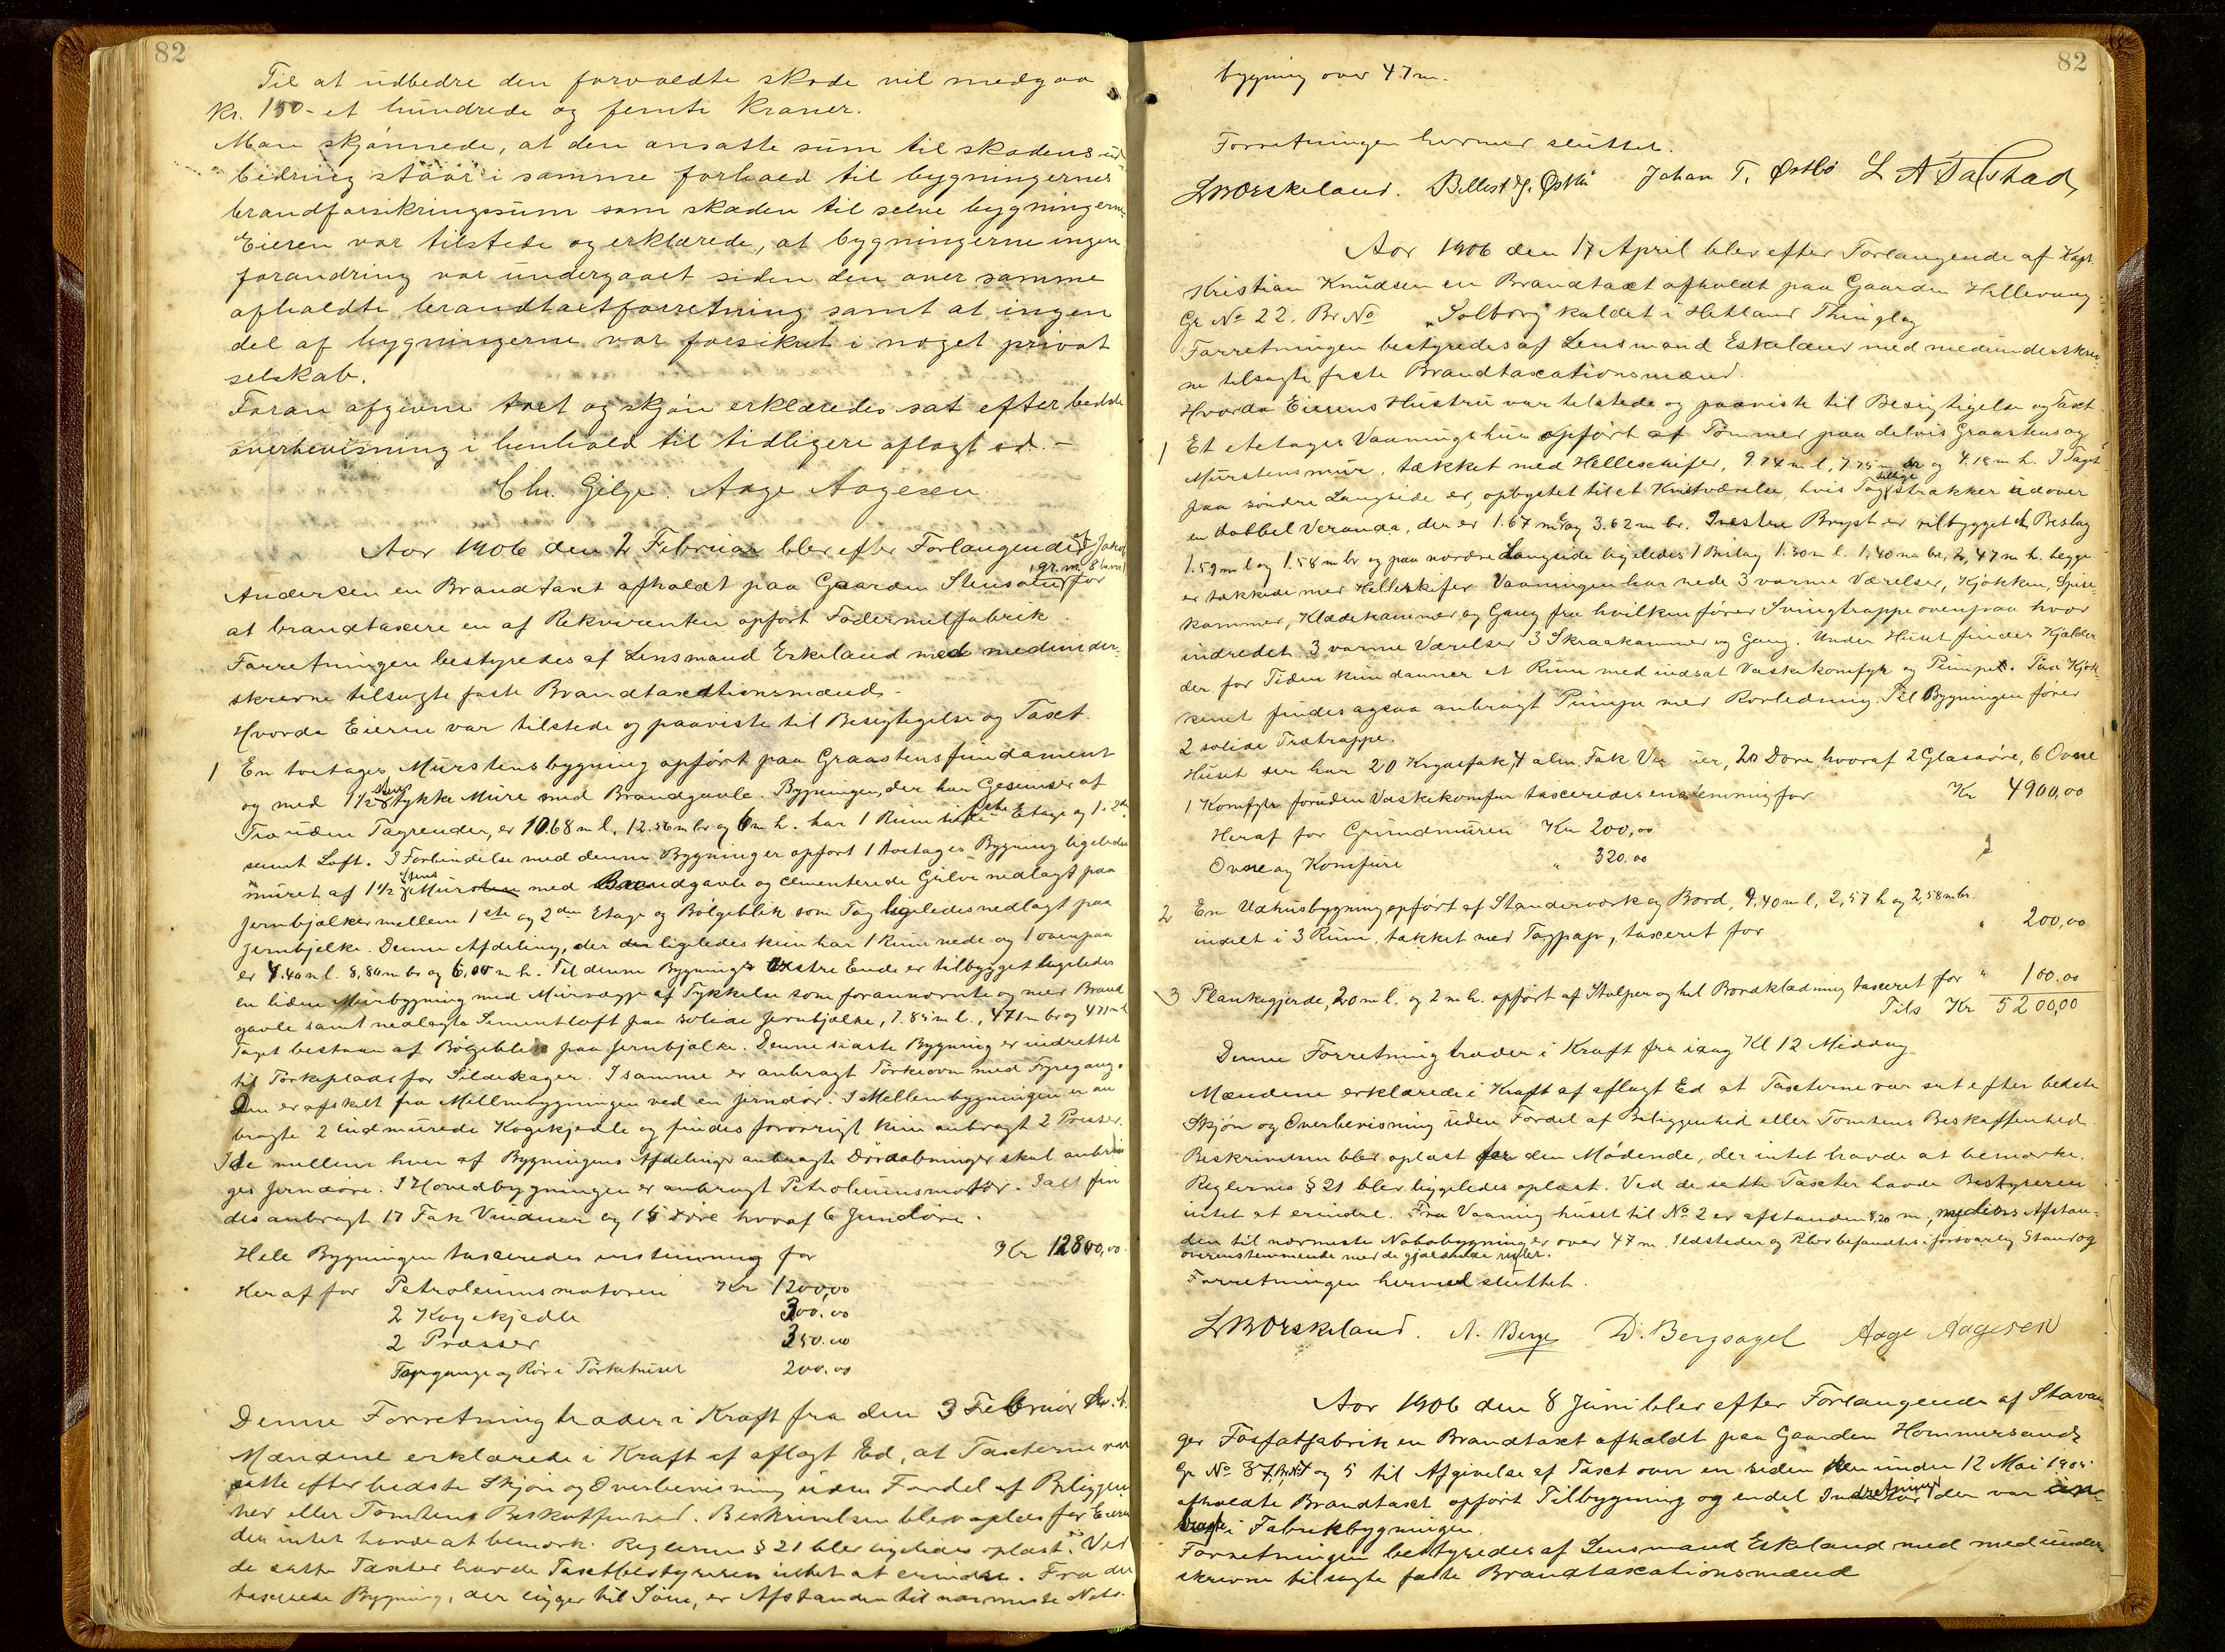 82
Til at udbedre den forvoldte skade vil medgaa
Kr. 150- et hundrede og femti kroner.
Man skjønnede, at den ansatte sum til skadens ud
bedring staar i samme forhold til bygningernes
brandforsikringssum som skaden til selve bygningerne
Eieren var tilstede og erklærede, at bygningerne ingen
forandring var undergaaet siden den over samme
afholdte brandtaxtforretning samt at ingen
del af bygningerne var forsikret i noget privat
selskab.
Foran afgivne taxt og skjøn erklæredes sat efter bedste
overbevisning i henhold til tidligere aflagt ed. -
Chr. Gilje. Aage Aagesen.
Aar 1906 den 2 Februar blev efter Forlangende af Jakob
Andersen en Brandtaxt afholdt paa Gaarden gr. nr. 8 for
at brandtaxere en af Rekvirenten opført Fodermelfabrik
Forretningen bestyredes af Lensmand Eskeland med medunder-
skrevne tilsagte faste Brandtaxationsmænd -
Hvorda Eieren var tilstede og paaviste til Besigtigelse og Taxt.
1 En toetages Murstensbygning opført paa Graastensfundament
og med 1 1/2 Stens tykke Mure med Brandgavle. Bygningen, der har Gesimser af
Træ uden Tagrender, er 10.68 m l. 12.56 m br og 6 m h. har 1 Rum i 1ste Etage og 1 i 2de
samt Loft. I Forbindelse med denne Bygning er opført 1 toetages Bygning ligeledes
muret af 1 1/2 Stens Mur med Brandgavle og cementerede Gulve nedlagt paa
Jernbjælker mellem 1ste og 2den Etage og Bølgeblik som Tag ligeledes nedlagt paa
Jernbjelke. Denne Afdeling, der ligeledes kun har 1 Rum nede og 1 ovenpaa
er 4.40 m l. 8,80 m br og 6,00 m h. Til denne Bygnings Østre Ende er tilbygget ligeledes
en liden Murbygning med Murvægge af Tykkelse som forannævnte og med Brand
gavle samt nedlagte Sementloft paa solide Jernbjælke, 7.85 m l., 4.71 m br og 4.71 m h
Taget bestaar af Bølgeblik paa Jernbjælke. Denne sidste Bygning er indrettet
til Tørkeplads for Sildekager. I samme er anbragt Tørkeovn med Fyregang.
Den er afskilt fra Mellembygningen ved en jerndør. I Mellembygningen er an
bragte 2 indmurede Kogekjedle og findes forøvrigt kun anbragt 2 Presser.
I de mellem hver af Bygningens Afdelinger anbragte Døraabninger skal anbrin
ges Jerndøre. I Hovedbygningen er anbragt Petroleumsmotor. Ialt fin
des anbragt 17 Fak Vinduer og 15 Døre hvoraf 6 Jerndøre.
Hele Bygningen taxeredes enstemmig for Kr 12800,00.
Heraf for Petroleumsmotoren Kr 1200,00
2 Kogekjedle 300.00
2 Præsser 350.00
Fyrgange og Rør i Tørkehuset 200.00
Denne Forretning træder i Kraft fra den 3 Februar
Mændene erklærede i Kraft af aflagt Ed, at Taxterne var
satte efter bedste Skjøn og Overbevisning uden Fordel af Beliggen
hed eller Tomtens Beskaffenhed. Beskrivelsen blev oplæst for Eieren
der intet havde at bemærke. Reglernes § 21 blev ligeledes oplæst. Ved
de satte Taxter havde Taxtbestyreren intet at erindre. Fra den
taxerede Bygning, der ligger til Søen, er Afstanden til nærmeste Nabo-
82
bygning over 47 m.
Forretningen hermed sluttet.
LWOEskeland. Johan T. Østbø L A Talstad
Aar 1906 den 17 April blev efter Forlangende af Kapt.
Kristian Knudsen en Brandtaxt afholdt paa Gaarden Hillevaag
Gr No 22. Br No „Solborg" kaldet i Hetland Thinglag
Forretningen bestyredes af Lensmand Eskeland med medunderskrev-
ne tilsagte faste Brandtaxationsmænd.
Hvorda Eierens Hustru var tilstede og paaviste til Besigtigelse og Taxt.
1 Et etetages Vaaningshus opført af Tømmer paa delvis Graastens og
Murstensmur, tækket med Helleskifer, 9.74 m l, 7.75 m br og 4.18 m h. I Taget
paa søndre Langside er opbygtet til et Kvistværelse, hvis Tag tillige strækker udover
en dobbel Veranda, der er 1.67 m og 3.62 m br. Bryst er tilbygget et Beslag
1.59 m l og 1.58 m br og paa nordre Langside ligeledes 1 Beslag 1.30 m l. 1,40 m br, 2,47 m h. begge
er tækkede med Helleskifer. Vaaningen har nede 3 varme Værelser, Kjøkken, Spise-
kammer, Klædekammer og Gang fra hvilken fører Svingtrappe ovenpaa hvor
indredet 3 varme Værelser 3 Skraakammer og Gang. Under Huset findes Kjælder
der for Tiden kun danner et Rum med indsat Vaskekomfyr og Pumpe. Paa Kjøk-
kenet findes ogsaa anbragt Pumpe med Rørledning. Til Bygningen fører
2 solide Trætrappe.
Huset der har 20 Krydsfak, 4 alm. Fak Vinduer, 20 Døre hvoraf 2 Glasdøre, 6 Ovne
1 Komfyr foruden Vaskekomfur taxeredes enstemmig for Kr 4900,00
Heraf for Grundmuren Kr 200,00
Ovne og Komfure " 320.00
2 En Udhusbygning opført af Standerværk og Bord, 9,40 m l, 2,57 h og 2,58 m br.
indelt i 3 Rum, tækket med Tagpap, taxeret for " 200,00
3 Plankegjerde, 20 m l. og 2 m h. opført af Stolper og hel Bordklædning taxeret for " 100.00
Tils Kr 5200,00
Denne Forretning træder i Kraft fra idag Kl 12 Middag
Mændene erklærede i Kraft af aflagt Ed at Taxterne var sat efter bedste
Skjøn og Overbevisning uden Fordel af Beliggenhed eller Tomtens Beskaffenhed.
Beskrivelsen blev oplæst for den Mødende, der intet havde at bemærke.
Reglernes § 21 blev ligeledes oplæst. Ved de satte Taxter havde Bestyreren
intet at erindre. Fra Vaaning huset til No 2 er afstanden 8,20 m, medens Afstan-
den til nærmeste Nabobygning er over 47 m. Ildsteder og Piber befandtes i forsvarlig Stand og
overenstemmende med de gjældende regler.
Forretningen hermed sluttet.
LWOEskeland. A. Berge D. Bergsagel Aage Aagesen
Aar 1906 den 8 Juni blev efter Forlangende af Stavan
ger Fosfatfabrik en Brandtaxt afholdt paa Gaarden Hommersand
Gr No 37, og 5 til Afgivelse af Taxt over en siden den under 12 Mai 1905
afholdte Brandtaxt opført Tilbygning og endel Indretninger der var an-
bragt i Fabrikbygningen.
Forretningen bestyredes af Lensmand Eskeland med medunder
skrevne tilsagte faste Brandtaxationsmænd